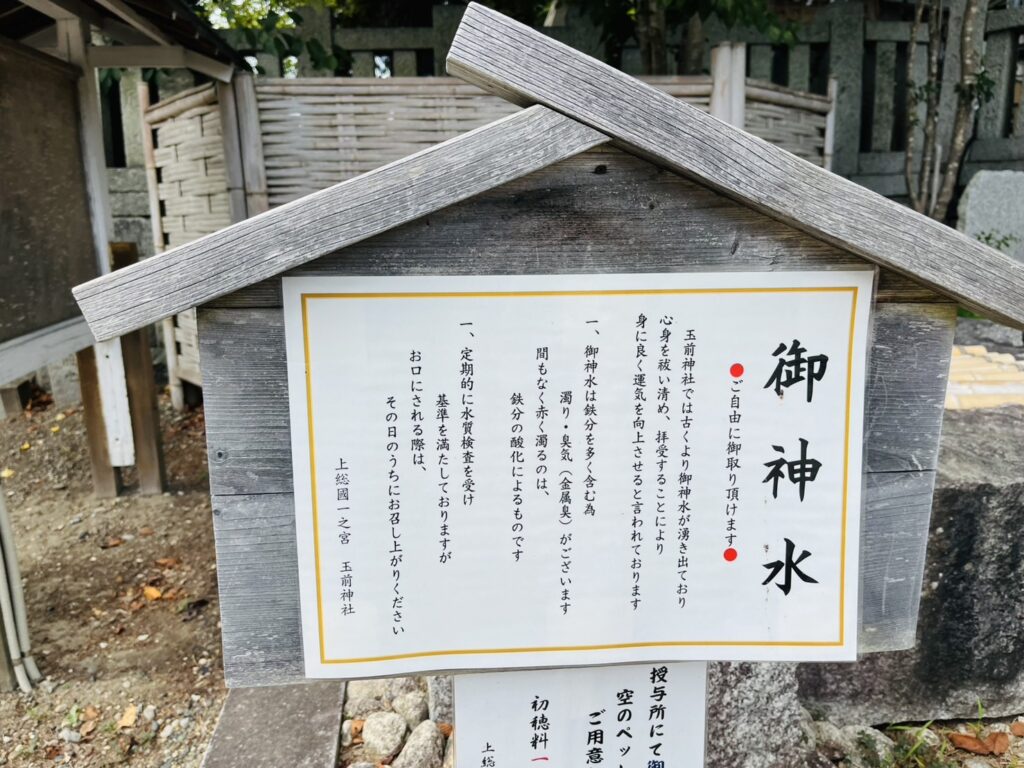 御神水
●ご自由に御取り頂けます●
玉前神社では古くより御神水が湧き出ており
心身を祓い清め、拝受することにより
身に良く運気を向上させると言われております
一、御神水は鉄分を多く含む為
濁り・臭気（金属臭）がございます
間もなく赤く濁るのは、
鉄分の酸化によるものです
一、定期的に水質検査を受け
基準を満たしておりますが
お口にされる際は、
その日のうちにお召し上がりください
上総國一之宮　玉前神社
授与所にて御
空のペッ
ご用意
初穂料 一
上総